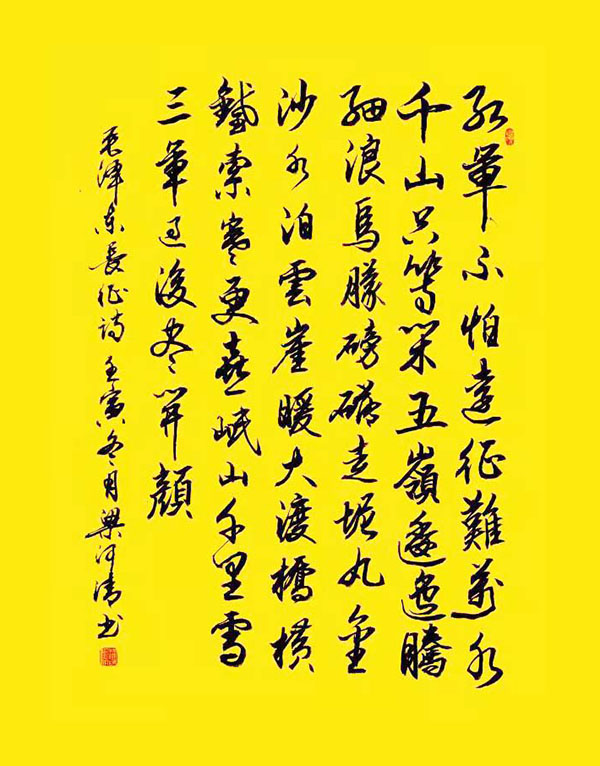 紅軍不怕遠征難萬水
千山只等閑五嶺逶迤騰
細浪烏朦磅礴走泥丸金
沙水泊雲崖暖大渡橋橫
鐵索寒更喜岷山千里雪
三軍過後盡開顏
毛澤東長征詩 壬寅冬月梁河清書